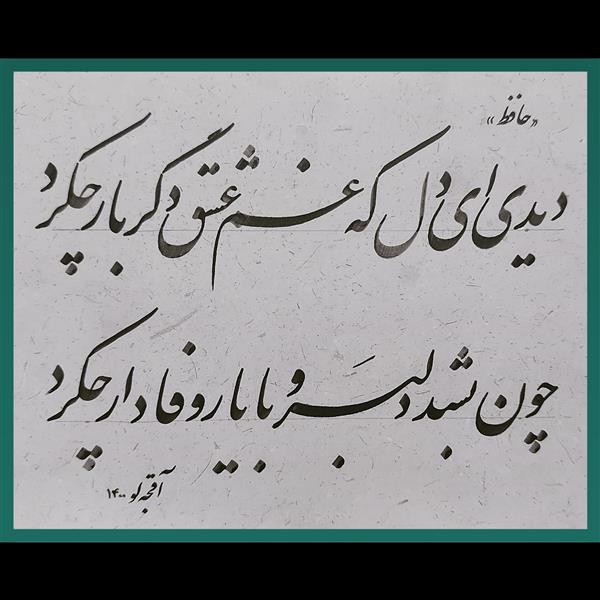 «حافظ»
دیدی ای دل که غم عشق دگر بار چکرد
چون بشد دلبر و با یار وفادار چکرد
آقجه لو ۱۴۰۰